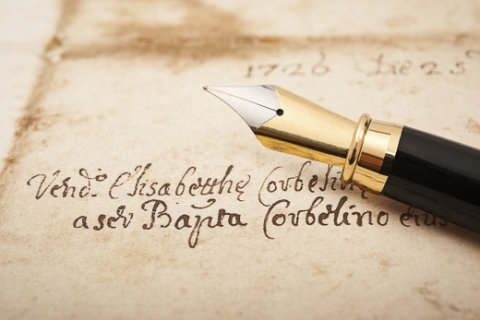 1720 Die 25
Vend.º Elisabetthę Corbelinę
a ser Bapta Corbelino eius